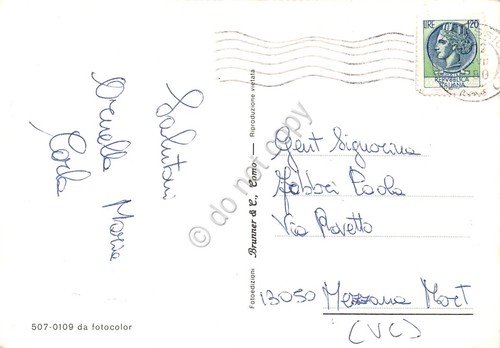 Salutoni
Ornella Maria
Carla
507-0109 da fotocolor
Fotoedizioni Brunner & C., Como — Riproduzione vietata
LIRE 120
Gent Signorina
Fabbri Paola
Via Rovetto
13050 Mezzana Mort
(VC)
do not copy